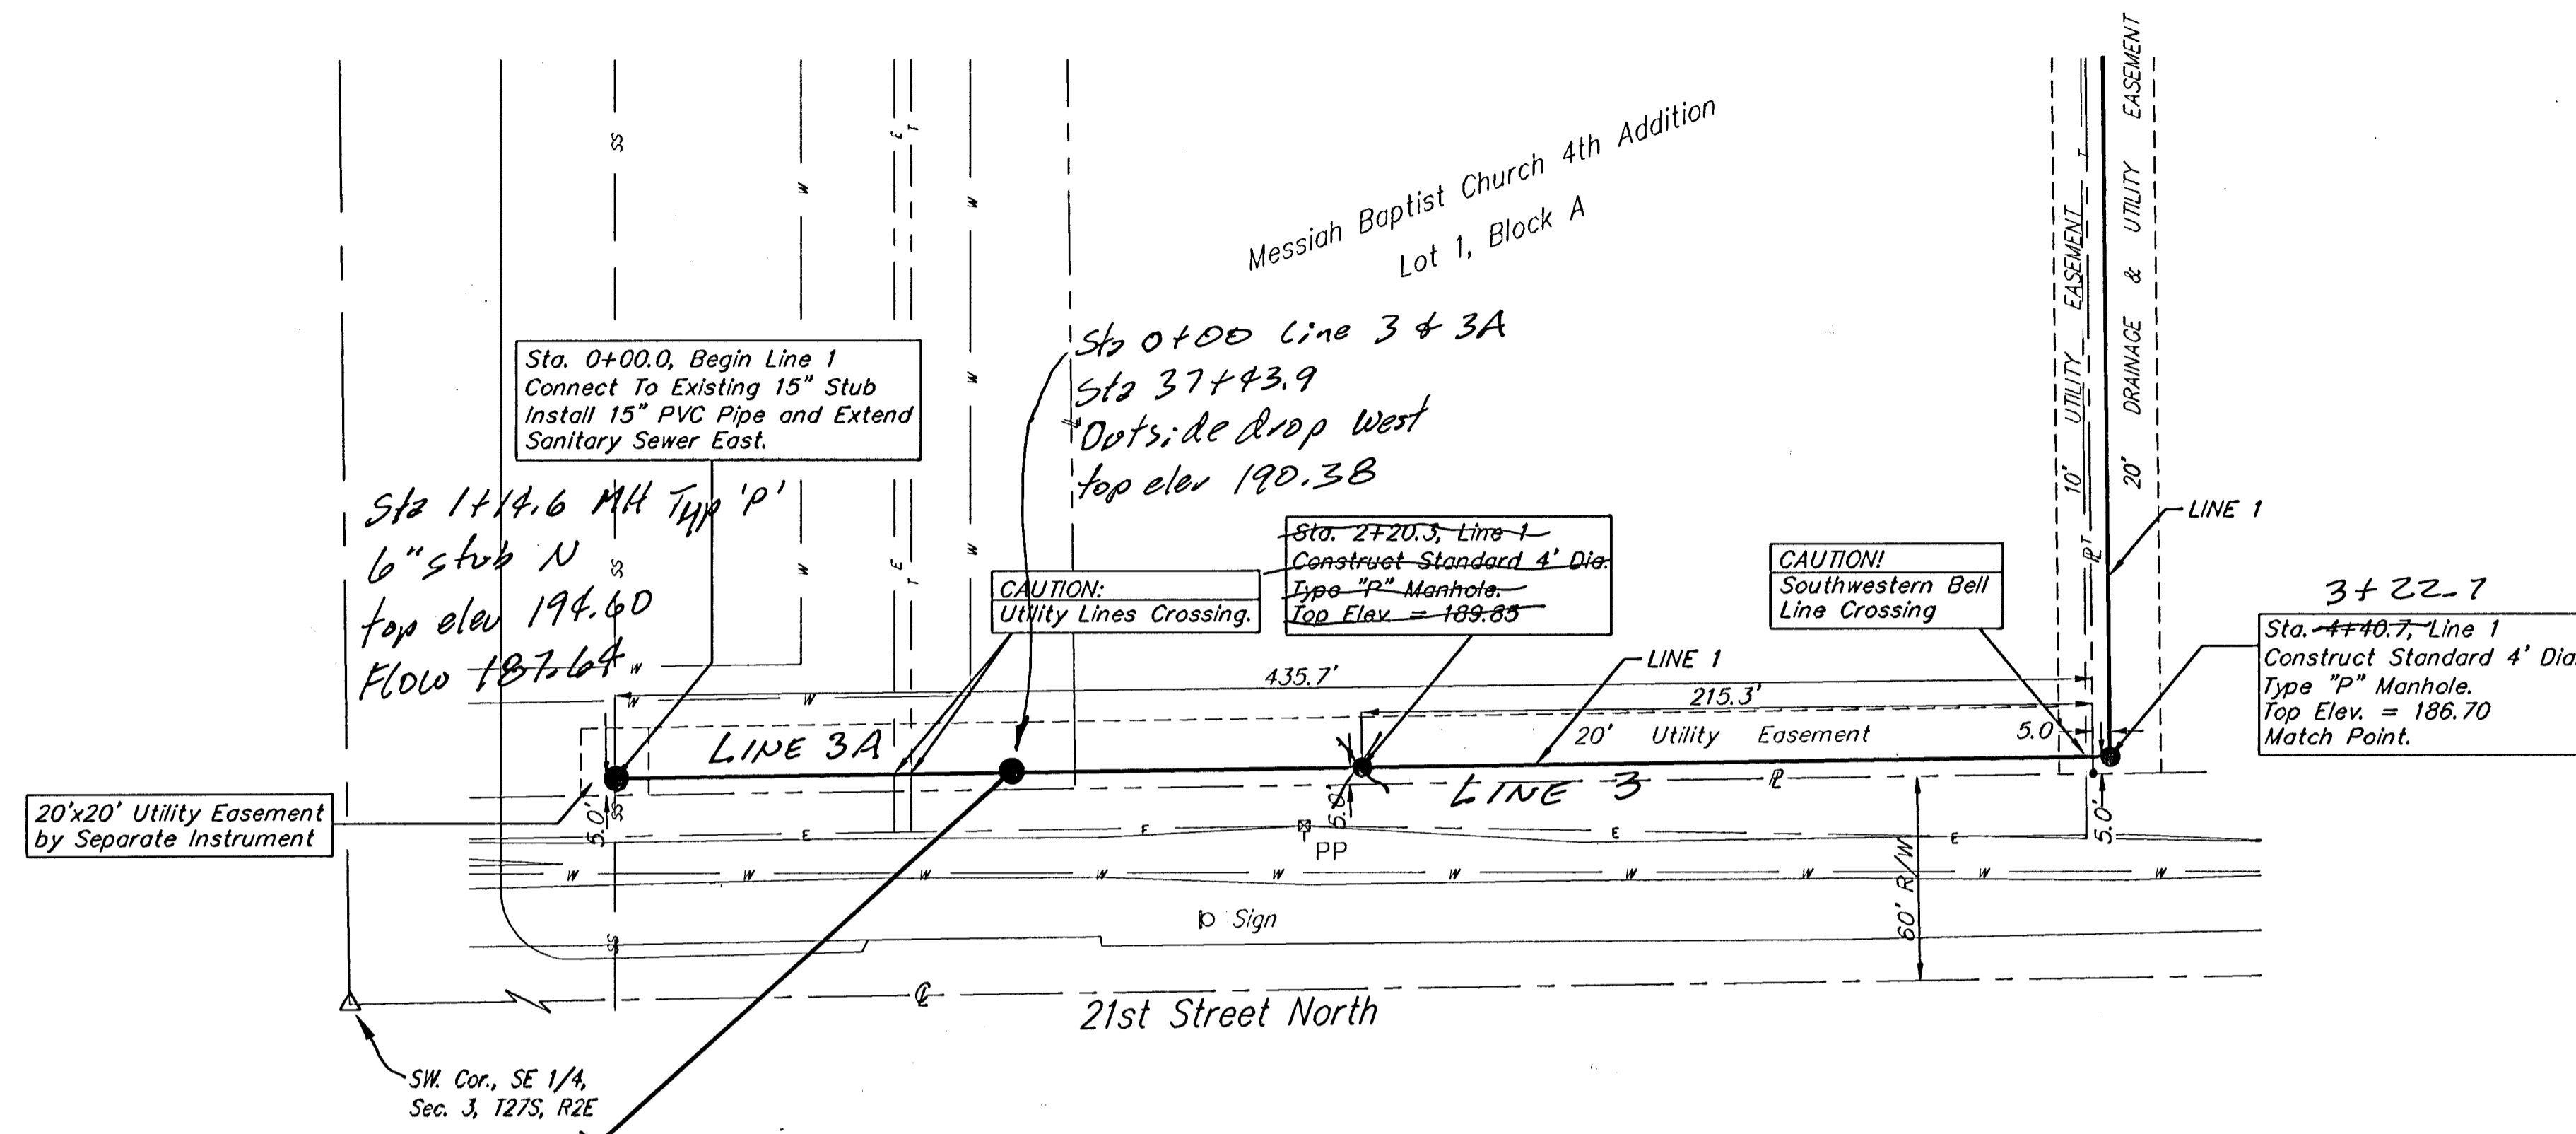 20' DRAINAGE & UTILITY EASEMENT
10' UTILITY EASEMENT
Messiah Baptist Church 4th Addition
Lot 1, Block A
SS
W
E
T
W
Sta. 0+00.0, Begin Line 1
Connect To Existing 15" Stub
Install 15" PVC Pipe and Extend
Sanitary Sewer East.
Sta 0+00 Line 3 & 3A
Sta 37+43.9
Outside drop West
top elev 190.38
Sta 1+14.6 MH Typ 'P'
6" stub N
top elev 194.60
Flow 187.64
CAUTION:
Utility Lines Crossing.
Sta. 2+20.3, Line 1
Construct Standard 4' Dia.
Type "P" Manhole.
Top Elev. = 189.85
CAUTION!
Southwestern Bell
Line Crossing
LINE 1
3+22.7
Sta. 4+40.7, Line 1
Construct Standard 4' Dia
Type "P" Manhole.
Top Elev. = 186.70
Match Point.
LINE 1
435.7'
215.3'
20' Utility Easement
5.0
LINE 3A
LINE 3
20'x20' Utility Easement
by Separate Instrument
5.0'
SS
5.0'
5.0'
E E E E
PP
W W W W W W W W W W
60' R/W
Sign
SS
21st Street North
SW. Cor., SE 1/4,
Sec. 3, T27S, R2E